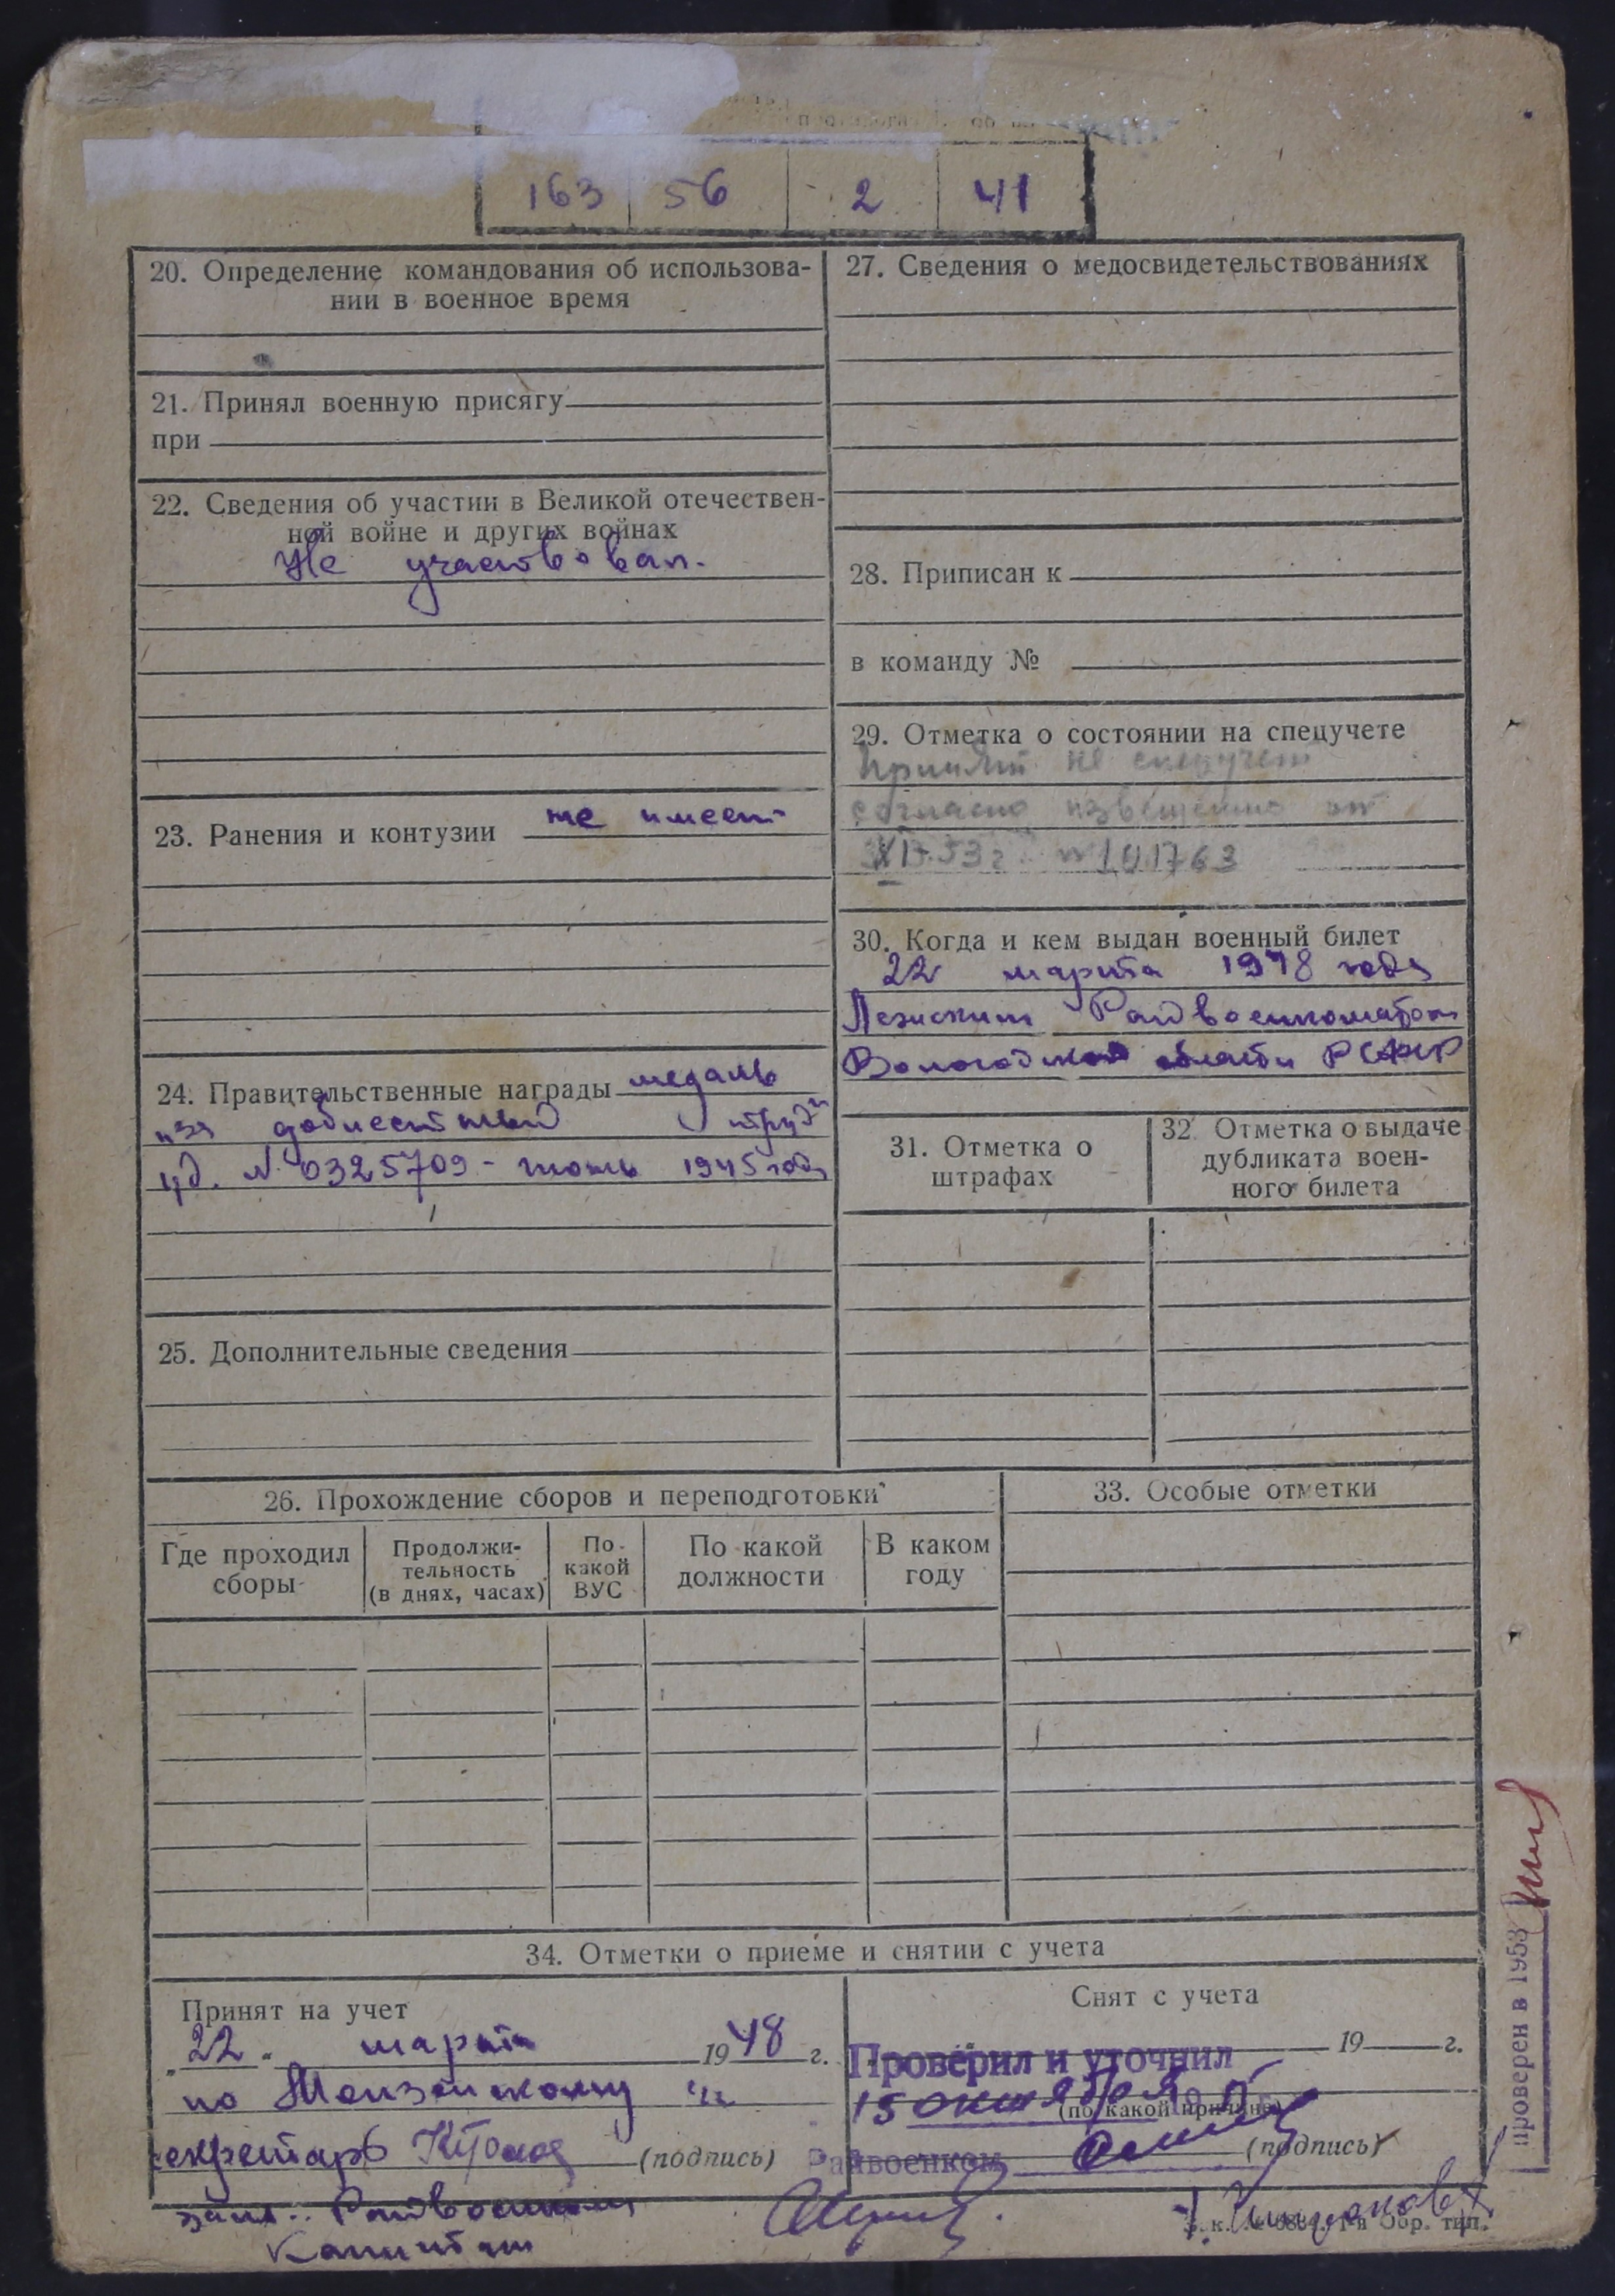 163 56 2 41
20. Определение командования об использова-
нии в военное время
21. Принял военную присягу
при
22. Сведения об участии в Великой отечествен-
ной войне и других войнах
Не участвовал.
23. Ранения и контузии не имеет
24. Правительственные награды медаль
"за доблестный труд"
уд. № 0325709 - 1945 года
25. Дополнительные сведения
27. Сведения о медосвидетельствованиях
28. Приписан к
в команду №
29. Отметка о состоянии на спецучете
Принят на спецучет
согласно извещению от
53 г. № 101763
30. Когда и кем выдан военный билет
22 марта 1948 года
Райвоенкоматом
Вологодской области РСФСР
31. Отметка о
штрафах
32. Отметка о выдаче
дубликата воен-
ного билета
26. Прохождение сборов и переподготовки
Где проходил
сборы
Продолжи-
тельность
(в днях, часах)
По
какой
ВУС
По какой
должности
В каком
году
33. Особые отметки
34. Отметки о приеме и снятии с учета
Принят на учет
"22" марта 1948 г.
по
секретарь (подпись)
зам. Райвоенкома
Капитан
Снят с учета
19 г.
Проверил и уточнил
15 октября
(по какой причине)
Райвоенком (подпись)
проверен в 1953